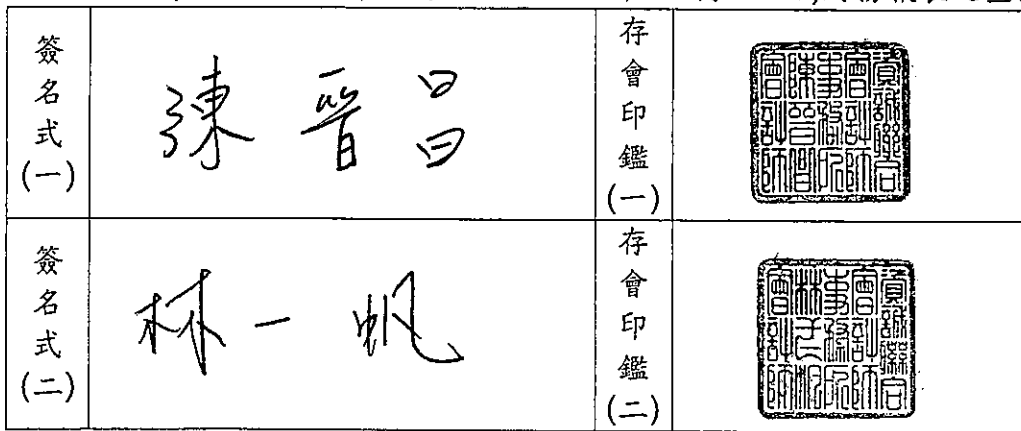 簽名式(一)
陳晉昌
存會印鑑(一)
資誠聯合
會計師
事務所
陳晉昌
會計師
簽名式(二)
林一帆
存會印鑑(二)
資誠聯合
會計師
事務所
林 帆
會計師